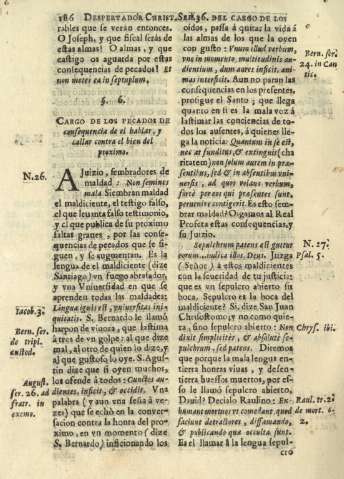 186 DESPERTADOR CHRIST. SER. 36. DEL CARGO DE LOS
rables que se verán entonces.
O Joseph, y que fiscal seràs de
estas almas! O almas, y que
castigo os aguarda por estas
consequencias de pecados! Et
non metet ea in septuplum.
§. 6.
CARGO DE LOS PECADOS DE
consequencia de el hablar, y
callar contra el bien del
proximo.
N.26.
A Juizio, sembradores de
maldad. Non semines
mala. Siembran maldad
el maldiciente, el testigo falso,
el que levanta falso testimonio,
y el que publica de su proximo
faltas graves, por las con-
sequencias de pecados que se si-
guen, y se augmentan. Es la
lengua de el maldiciente (dize
Santiago) vn fuego abrasador,
y vna Vniversidad en que se
aprenden todas las maldades:
Iacob. 3.
Lingua ignis est, vniversitas ini-
quitatis. S. Bernardo le llamò
Bern. ser.
de tripl.
custod.
harpon de vivora, que lastima
à tres de vn golpe: al que dize
mal, al otro de quien lo dize, y
al que gustoso lo oye. S. Agus-
tin dize que si oyen muchos,
los ofende à todos: Cunctos au-
August.
ser. 26. ad
fratr. in
eremo.
dientes, inficit, & occidit. Vna
palabra (y aun vna seña à ve-
zes) que se echò en la conver-
sacion contra la honra del pro-
ximo, en vn momento (dize
S. Bernardo) inficionando los
oidos, passa à quitar la vida à
las almas de los que la oyen
con gusto: Vnum illud verbum,
vno in momento, multitudinis au-
Bern. ser.
24. in Can
tic.
dientium, dum aures inficit, ani-
mas interficit. Aun no paran las
consequencias en los presentes,
prosigue el Santo; que llega
quanto en si es la mala voz à
lastimar las conciencias de to-
dos los ausentes, à quienes lle-
ga la noticia: Quantum in se est,
nec ad funditus, & extinguit (cha
ritatem) non solum autem in præ-
sentibus, sed & in absentibus vni-
versis, ad quos volans verbum,
fortè per eos qui præsentes sunt,
pervenire contigerit. Es esto sem-
brar maldad? Oigamos al Real
Profeta estas consequencias, y
su juizio.
N. 27.
Sepulchrum patens est guttur
Psal. 5.
eorum... iudica illos, Deus. Juzga
(Señor) à estos maldicientes
con la severidad de tu justicia;
que es vn sepulcro abierto su
boca. Sepulcro es la boca del
maldiciente? Si, dize San Juan
Christostomo; y no como quie-
ra, sino sepulcro abierto: Non
Chrys. ibi.
dixit simpliciter, & absolutè se-
pulchrum, sed patens. Diremos
que porque la mala lengua en-
tierra honras vivas, y desen-
tierra huessos muertos, por es-
so le llamò sepulcro abierto,
David? Decialo Raulino: Ex-
Raul. tr. 2.
de mort. 6.
2,
humant mortuos vt comedant, quod
faciunt detractores, diffamando,
& publicando quæ occulta sunt.
Es el llamar à la lengua sepul-
cro